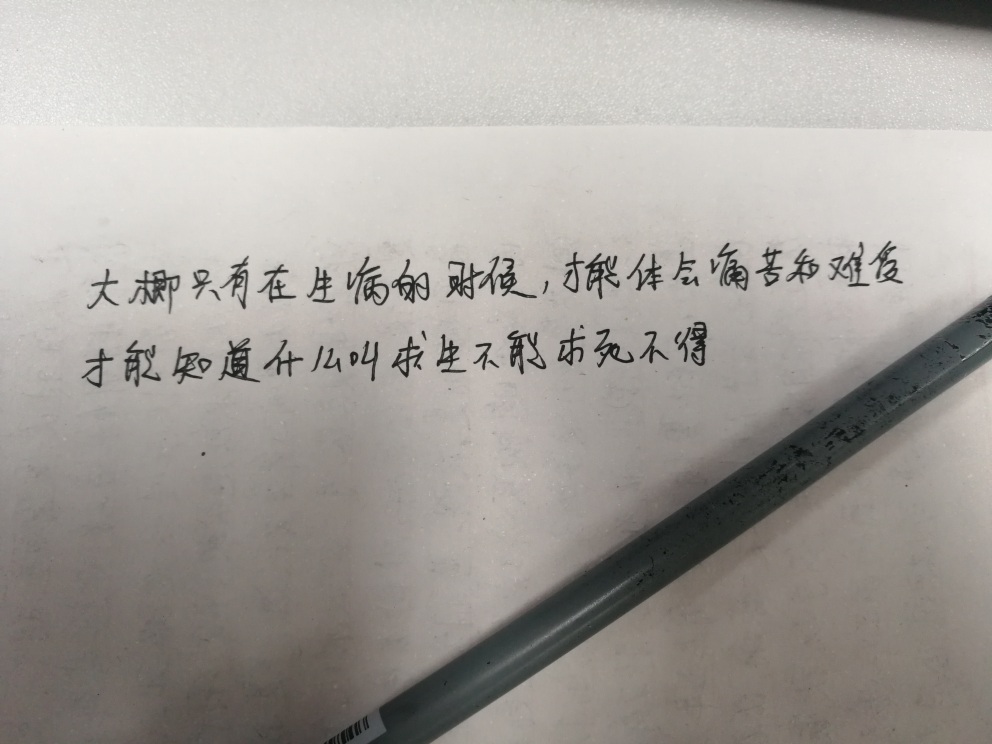 大概只有在生病的时候，才能体会痛苦和难受
才能知道什么叫求生不能求死不得